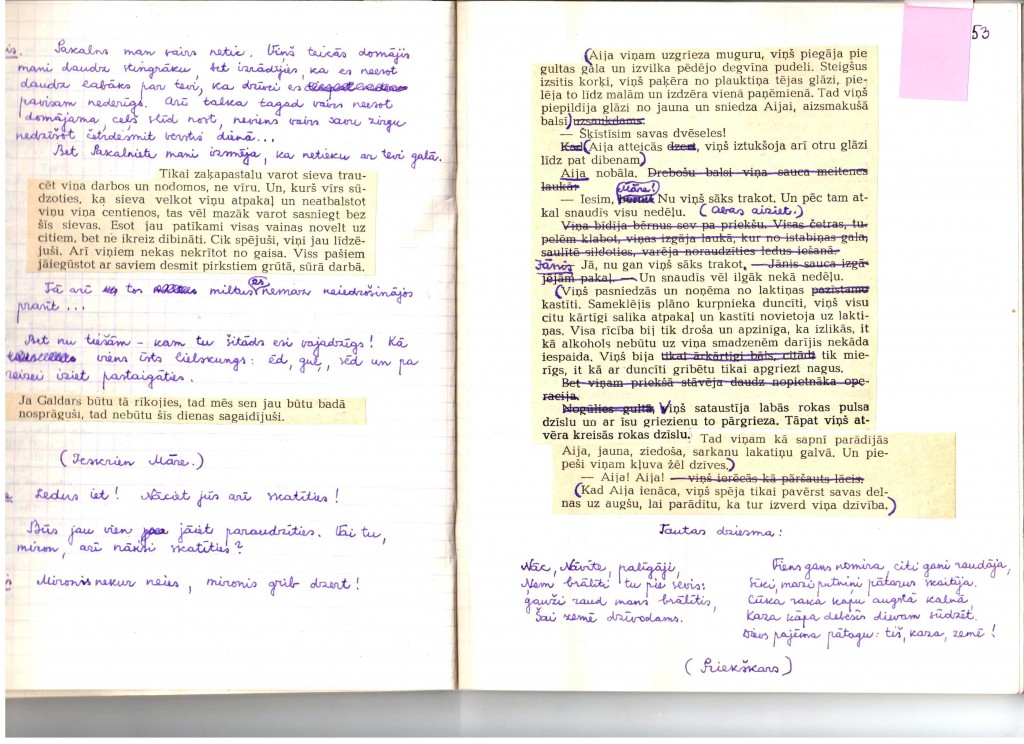 is. Pakalns man vairs netic. Viņš teicās domājis
mani daudz stingrāku, bet izrādījies, ka es neesot
daudz labāks par tevi, ka dzīvei es
pavisam nederīgs. Arī talka tagad vairs neesot
domājama, ceļš slīd nost, neviens vairs savu zirgu
nedzīšot četrdesmit verstis dienā...
Bet Pakalniete mani izsmēja, ka netieku ar tevi galā.
Tikai zaķapastalu varot sieva trau-
cēt viņa darbos un nodomos, ne vīru. Un, kurš vīrs sū-
dzoties, ka sieva velkot viņu atpakaļ un neatbalstot
viņu viņa centienos, tas vēl mazāk varot sasniegt bez
šīs sievas. Esot jau patīkami visas vainas novelt uz
citiem, bet ne ikreiz dibināti. Cik spējuši, viņi jau līdzē-
juši. Arī viņiem nekas nekrītot no gaisa. Viss pašiem
jāiegūstot ar saviem desmit pirkstiem grūtā, sūrā darbā.
Tā arī to miltus es nemaz neiedrošinājos
prasīt...
Bet nu tiešām - kam tu šitāds esi vajadzīgs! Kā
viens īsts lielskungs: ēd, guļ, sēd un pa
reizei iziet pastaigāties.
Ja Galdars būtu tā rīkojies, tad mēs sen jau būtu badā
nosprāguši, tad nebūtu šīs dienas sagaidījuši.
(Ieskrien Māre.)
Ledus iet! Nāciet jūs arī skatīties!
Būs jau vien jāiet paraudzīties. Vai tu,
miron, arī nāksi skatīties?
Mironis nekur neies, mironis grib dzert!
53
(Aija viņam uzgrieza muguru, viņš piegāja pie
gultas gala un izvilka pēdējo degvīna pudeli. Steigšus
izsitis korķi, viņš pakēra no plauktiņa tējas glāzi, pie-
lēja to līdz malām un izdzēra vienā paņēmienā. Tad viņš
piepildīja glāzi no jauna un sniedza Aijai, aizsmakušā
balsī) uzsaukdams:
— Šķīstīsim savas dvēseles!
Kad (Aija atteicās dzert, viņš iztukšoja arī otru glāzi
līdz pat dibenam)
Aija nobāla. Drebošu balsi viņa sauca meitenes
laukā:
— Iesim, Māre! Nu viņš sāks trakot. Un pēc tam at-
kal snaudīs visu nedēļu. (Abas aiziet.)
Viņa bīdīja bērnus sev pa priekšu. Visas četras, tu-
pelēm klabot, viņas izgāja laukā, kur no istabiņas gala,
saulītē sildoties, varēja noraudzīties ledus iešanā.
Jānis Jā, nu gan viņš sāks trakot, — Jānis sauca izgā-
jējām pakaļ. — Un snaudīs vēl ilgāk nekā nedēļu.
(Viņš pasniedzās un noņēma no laktiņas pazīstamo
kastīti. Sameklējis plāno kurpnieka duncīti, viņš visu
citu kārtīgi salika atpakaļ un kastīti novietoja uz lakti-
ņas. Visa rīcība bij tik droša un apzinīga, ka izlikās, it
kā alkohols nebūtu uz viņa smadzenēm darījis nekāda
iespaida. Viņš bija tikai ārkārtīgi bāls, citādi tik mie-
rīgs, it kā ar duncīti gribētu tikai apgriezt nagus.
Bet viņam priekšā stāvēja daudz nopietnāka ope-
rācija.
Nogūlies gultā, Viņš sataustīja labās rokas pulsa
dzīslu un ar īsu griezienu to pārgrieza. Tāpat viņš at-
vēra kreisās rokas dzīslu. Tad viņam kā sapnī parādījās
Aija, jauna, ziedoša, sarkanu lakatiņu galvā. Un pie-
peši viņam kļuva žēl dzīves.)
— Aija! Aija! — viņš ierēcās kā pāršauts lācis.
(Kad Aija ienāca, viņš spēja tikai pavērst savas del-
nas uz augšu, lai parādītu, ka tur izverd viņa dzīvība.)
Tautas dziesma:
Nāc, Nāvīte, palīgāji,
Ņem brālīti tu pie sevis:
gauži raud mans brālītis,
Šai zemē dzīvodams.
Viens gans nomira, citi gani raudāja,
Sīki, mazi putniņi pātarus skaitīja.
Cūka raka kapu augstā kalnā,
Kaza kāpa debesīs dievam sūdzēt.
Dievs paņēma pātagu: tiš, kaza, zemē!
(Priekškars)